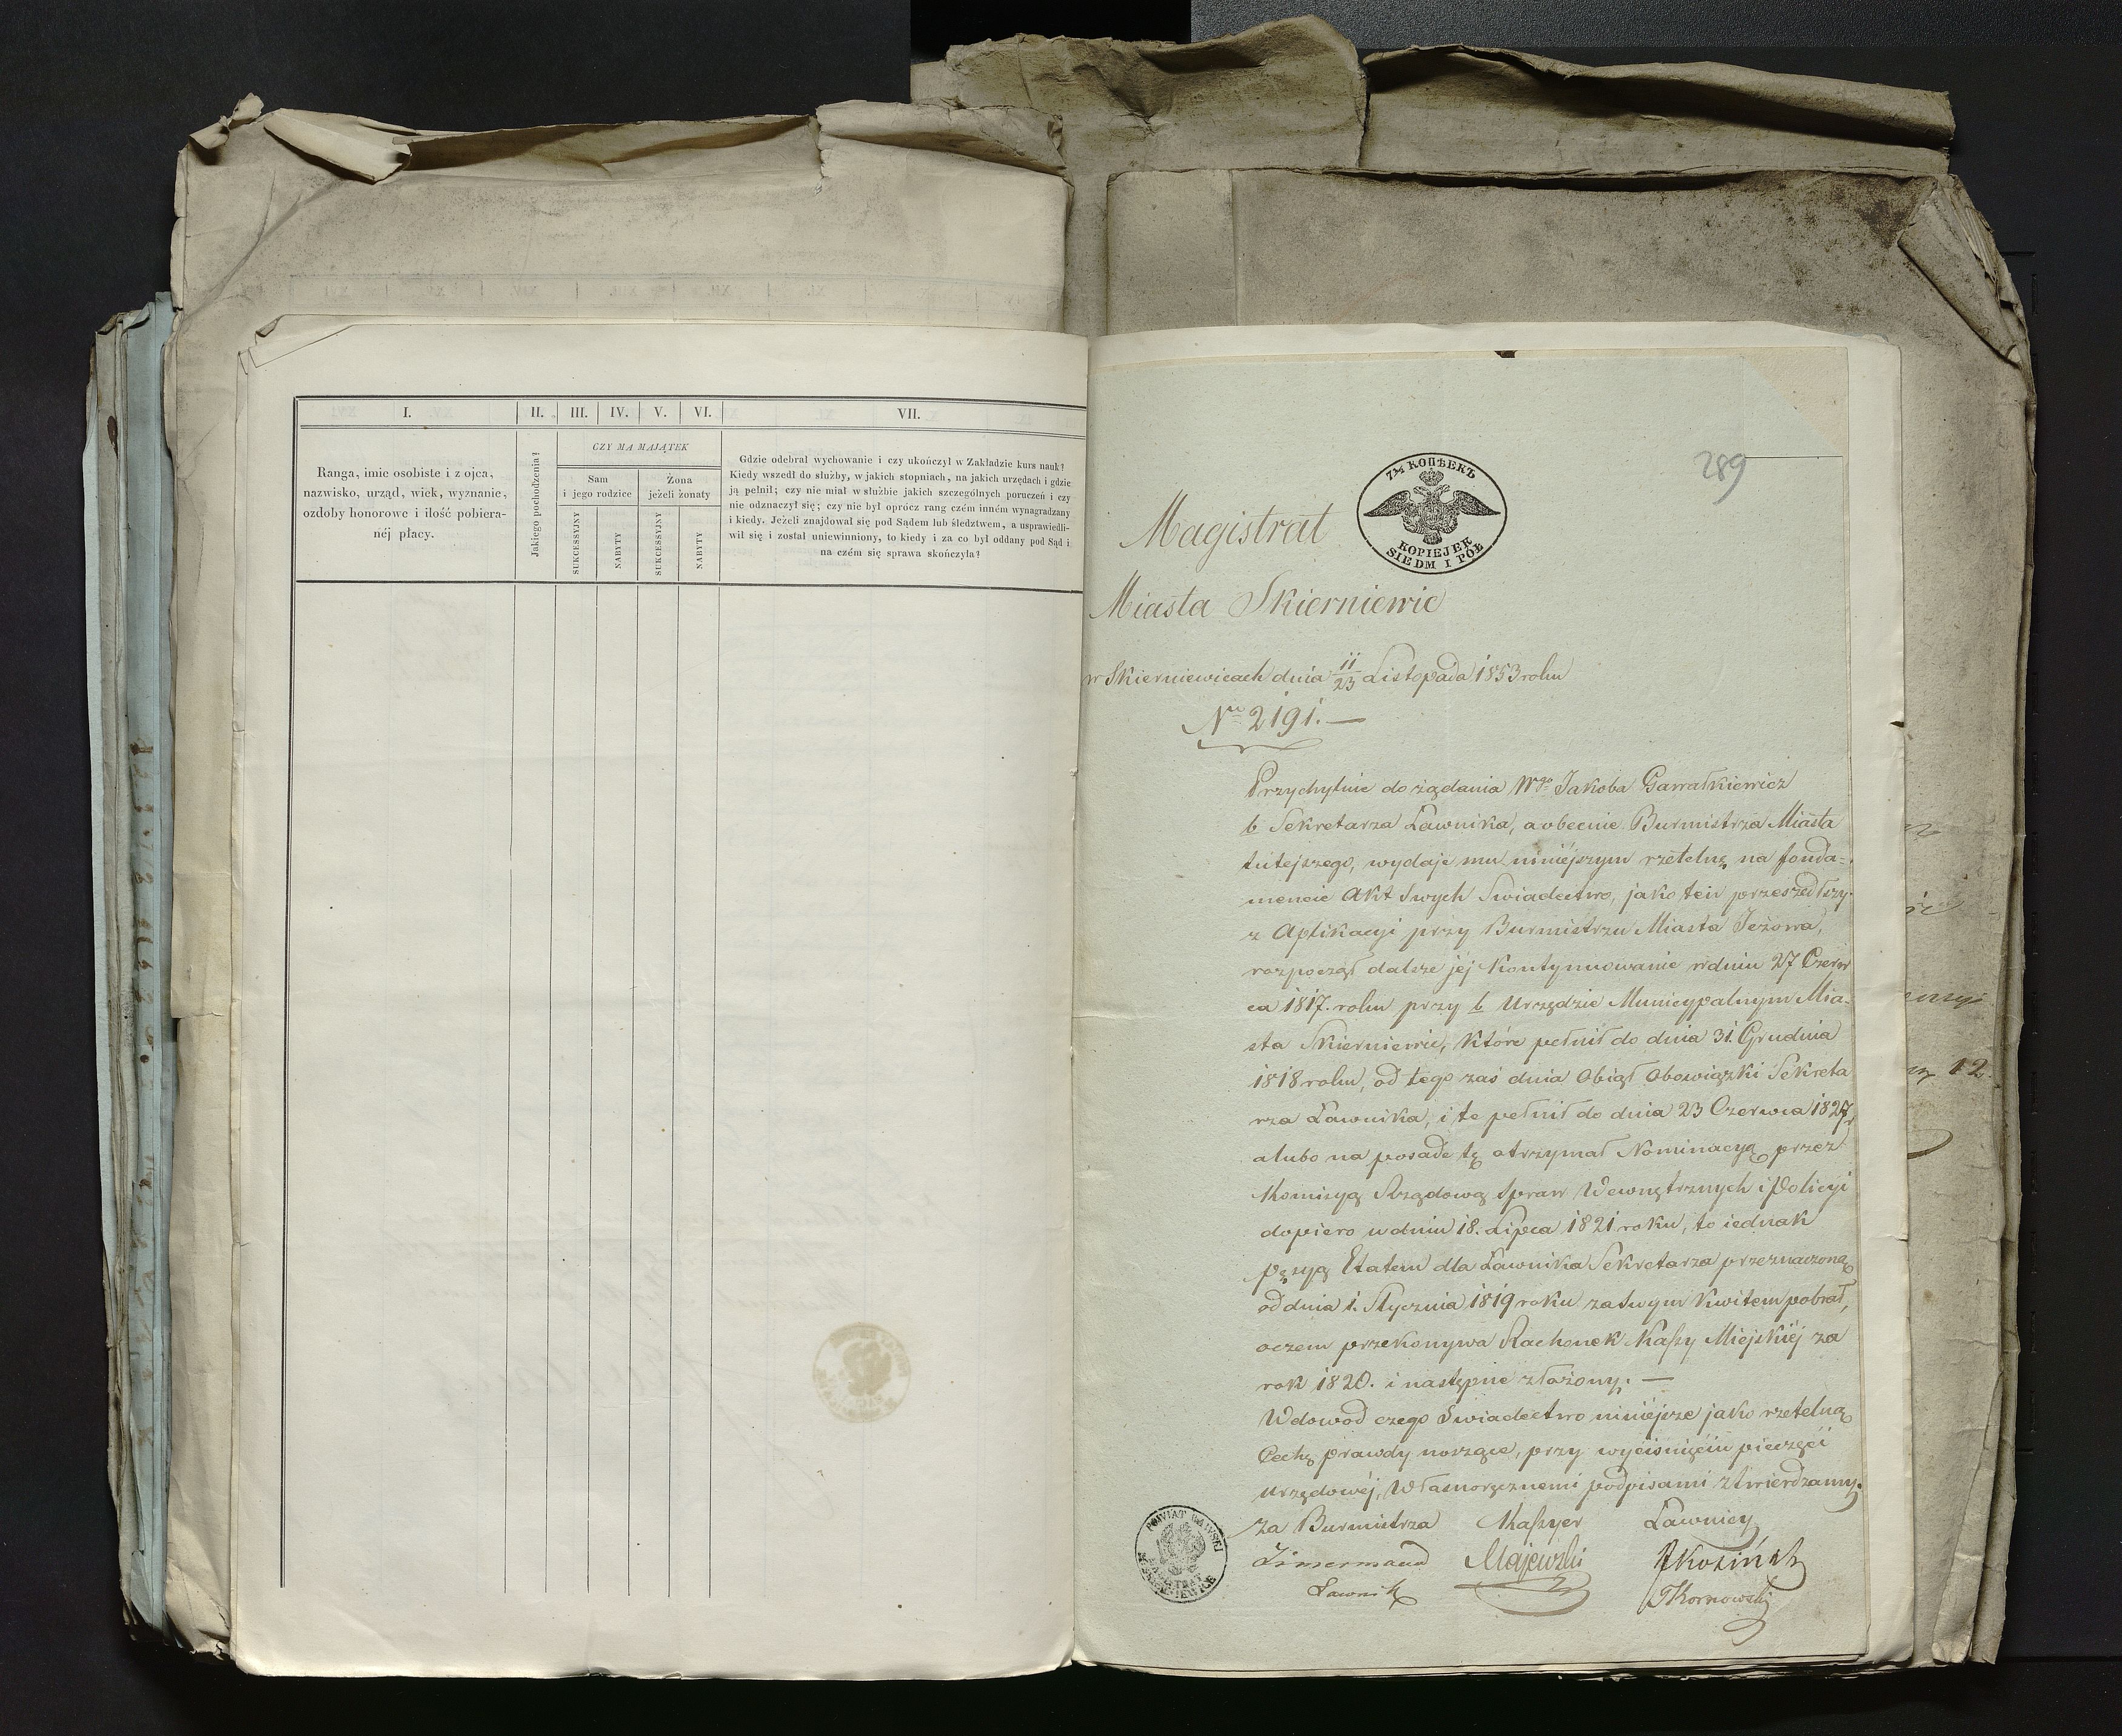 I.
II.
III.
IV.
V.
VI.
VII.
Ranga, imie osobiste i z ojca,
nazwisko, urząd, wiek, wyznanie,
ozdoby honorowe i ilość pobiera-
néj płacy.
Jakiego pochodzenia?
CZY MA MAJĄTEK
Sam
i jego rodzice
Żona
jeżeli żonaty
SUKCESSYJNY
NABYTY
SUKCESSYJNY
NABYTY
Gdzie odebrał wychowanie i czy ukończył w Zakładzie kurs nauk?
Kiedy wszedł do służby, w jakich stopniach, na jakich urzędach i gdzie
ją pełnił; czy nie miał w służbie jakich szczególnych poruczeń i czy
nie odznaczył się; czy nie był oprócz rang czém inném wynagradzany
i kiedy. Jeżeli znajdował się pod Sądem lub śledztwem, a usprawiedli-
wił się i został uniewinniony, to kiedy i za co był oddany pod Sąd i
na czém się sprawa skończyła?
289
7½ КОПѢЕКЪ
KOPIEJEK
SIEDM I PÓŁ
Magistrat
Miasta Skierniewic
w Skierniewicach dnia 11/23 Listopada 1853 roku
Nr 2191. —
Przychylnie do żądania Wgo Jakoba Gawałkiewicz
b Sekretarza Ławnika, a obecnie Burmistrza Miasta
tutejszego, wydaje mu niniéjszym rzetelnę na fonda=
mencie Akt Swych Swiadectwo, jako ten przeszedłszy
z Aplikacyi przy Burmistrzu Miasta Jeżowa,
rozpoczął dalsze jéj Kontynuowanie w dniu 27 Czerw
ca 1817. roku przy b Urzędzie Municypalnym Mia-
sta Skierniewic, które pełnił do dnia 31. Grudnia
1818 roku, od tego zaś dnia Obiął Obowiązki Sekreta
rza Ławnika, i te pełnił do dnia 23 Czerwca 1827 r
a lubo na posade tę otrzymał Nominacyą przez
Komisyą Rządową Spraw Wewnętrznych i Policyi
dopiero w dniu 18. Lipca 1821 roku, to iednak
pęsyą Etatem dla Ławnika Sekretarza przeznaczoną
od dnia 1. Stycznia 1819 roku za swym Kwitem pobrał,
o czem przekonywa Rachonek Kassy Miejskiéj za
rok 1820. i następnie złożony. —
W dowod czego Swiadectwo niniéjsze jako rzetelną
Cechę prawdy noszące, przy wyciśnięciu pieczęci
urzędowéj, Własnoręcznemi podpisami ztwierdzamy.
za Burmistrza Kassyer Ławnicy
Zimermann Majewski JKoziński
Ławnik TKornowski
POWIAT RAWSKI
MAGISTRAT
M. SKIERNIEWICE
12.